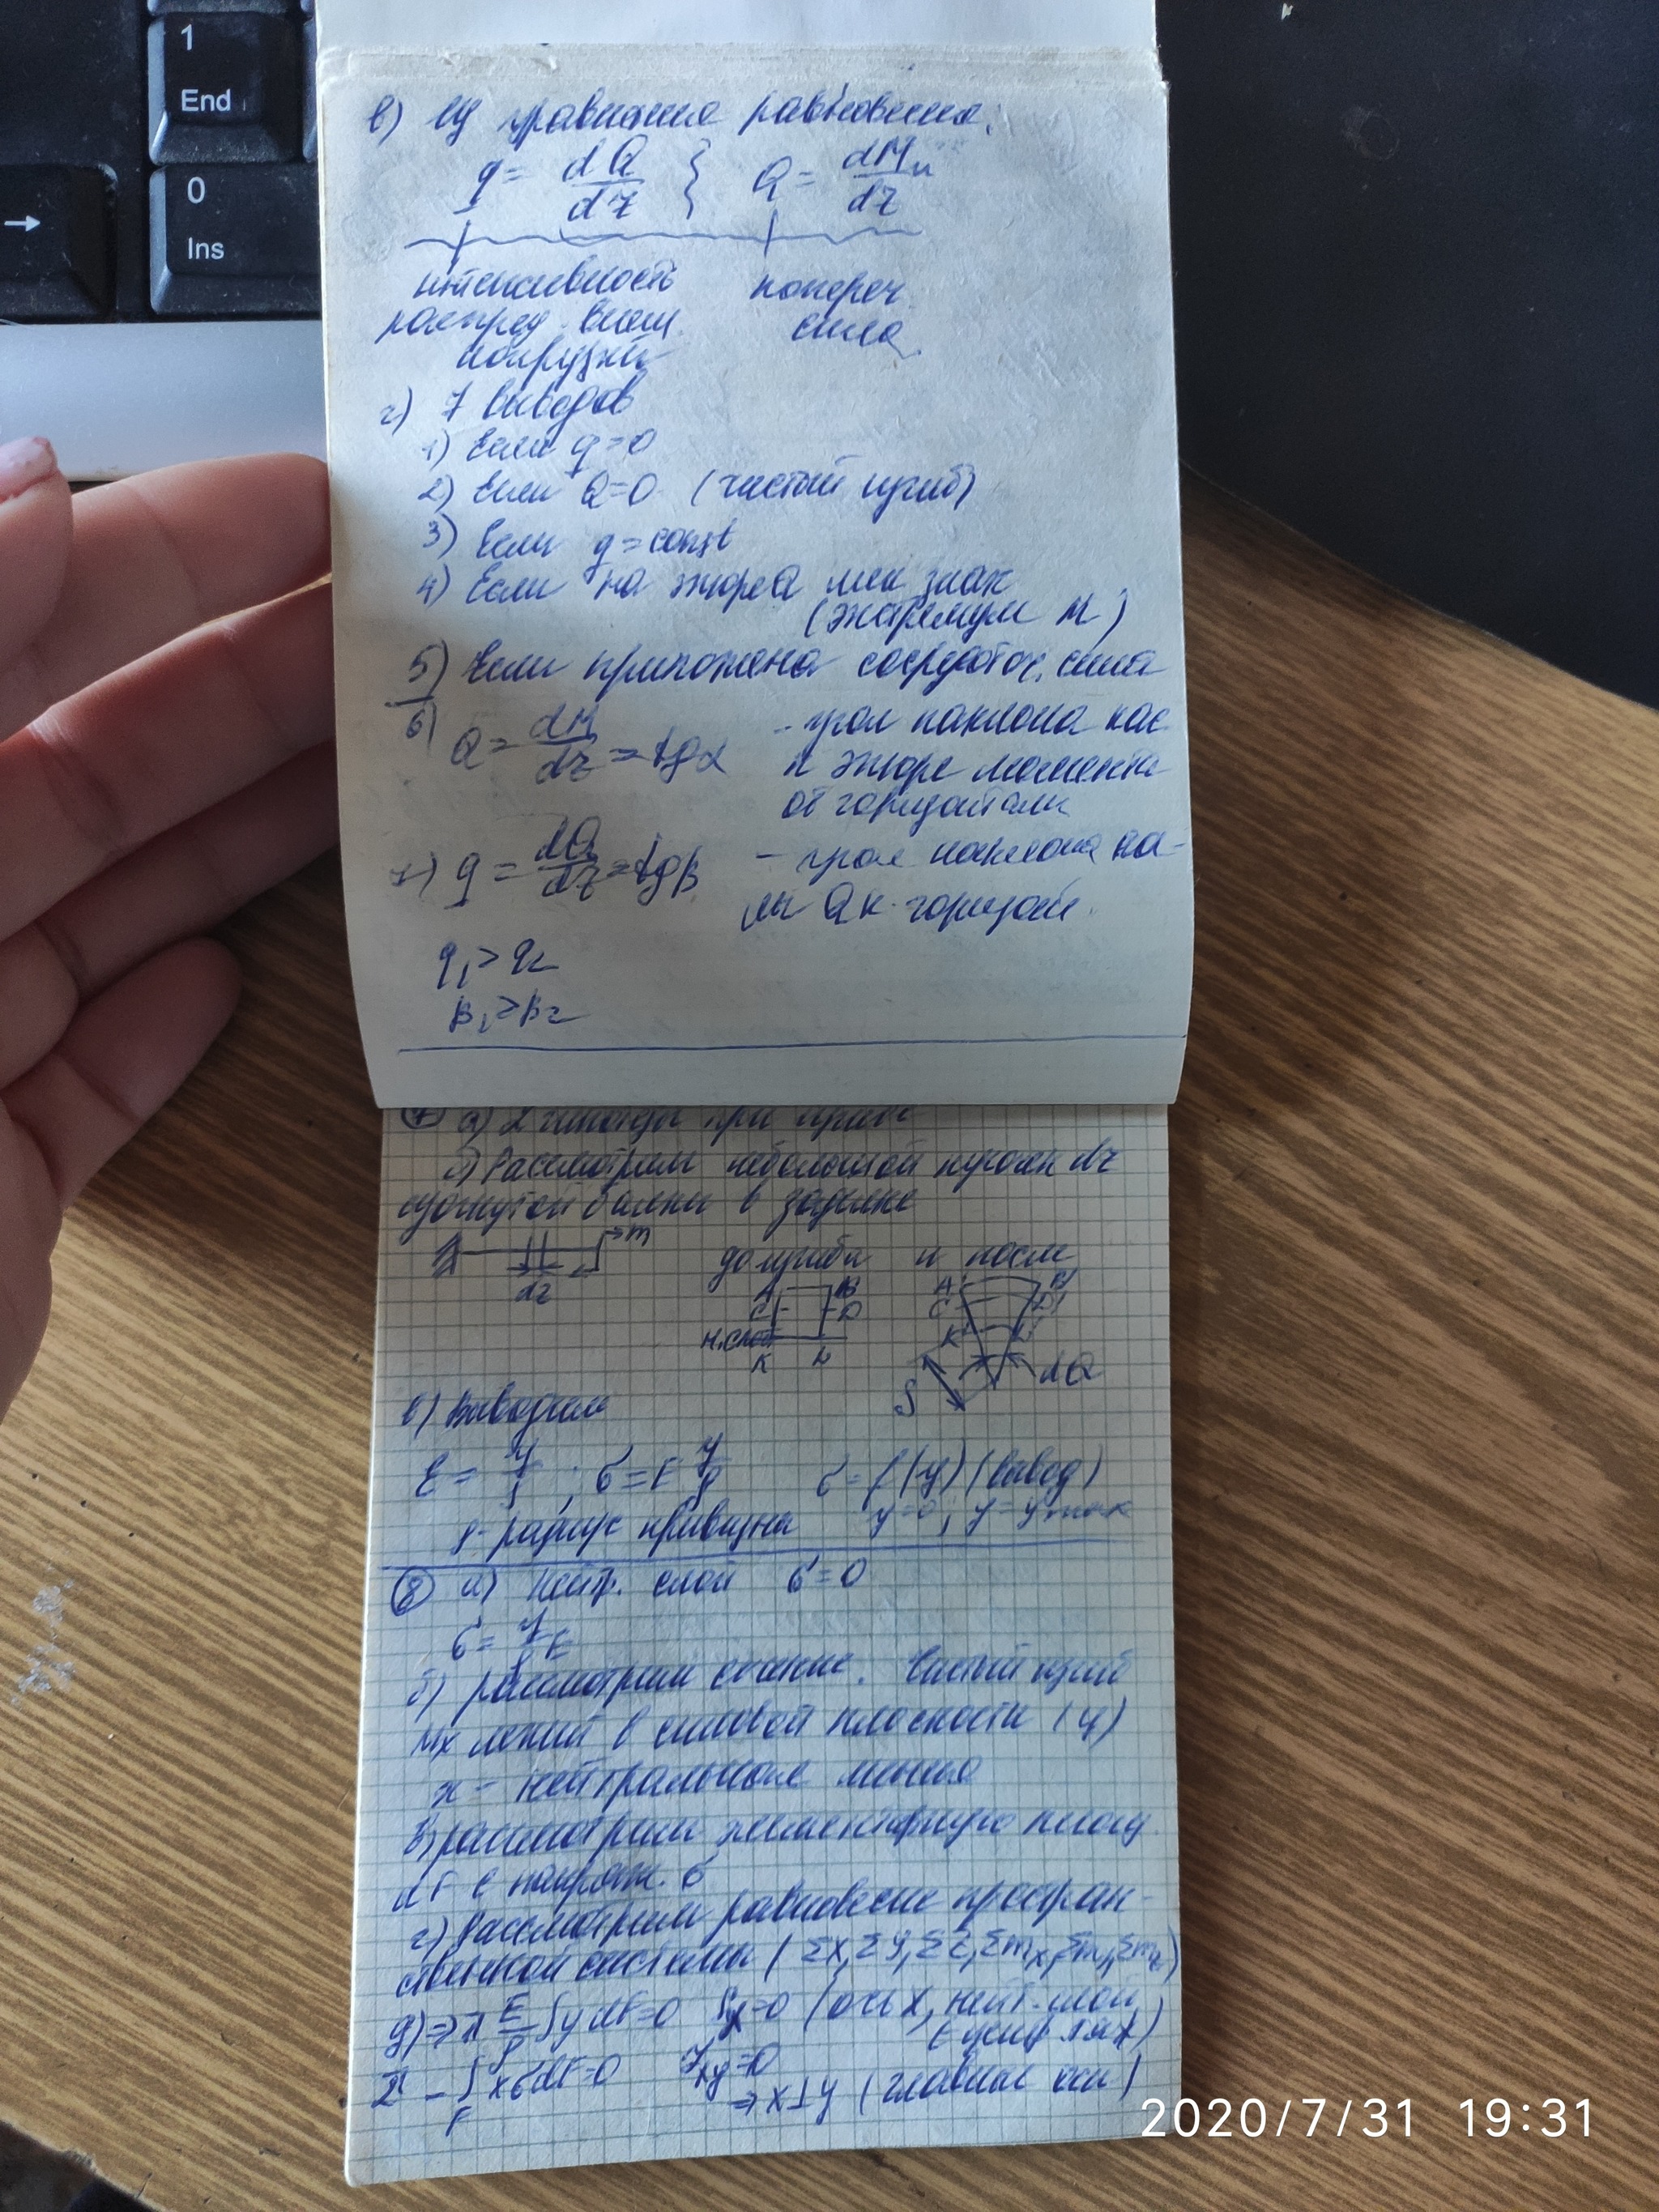 1
End
0
Ins
→
в) Из уравнения равновесия:
q = dQ/dz } Q = dMи/dz
интенсивность попереч
распред. внеш. сила
нагрузки
г) 7 выводов
1) Если q=0
2) Если Q=0 (чистый изгиб)
3) Если q=const
4) Если на эпюре Q мен знак
(экстремум M)
5) Если приложена сосредоточ. сила
6) Q = dM/dz = tgα - угол наклона кас
к эпюре момента
от горизонтали
7) q = dQ/dz = tgβ - угол наклона ка-
Q к горизонт.
q₁>q₂
β₁>β₂
7 а) 2 гипотезы при изгибе
б) Рассмотрим небольшой кусочек dz
изогнутой балки в заделке
m
dz
до изгиба и после
A B A' B'
C D C' D'
н.слой
K L K' L'
ρ dQ
в) Выводим
ε = y/ρ ; σ = E y/ρ σ=f(y) (вывод)
ρ - радиус кривизны y=0, y=ymax
8 а) Нейтр. слой σ=0
σ = y/ρ E
б) рассмотрим сечение. Чистый изгиб
Mx лежит в силовой плоскости (y)
x - нейтральная линия
в) рассмотрим элементарную площ
dF с напряж. σ
г) Рассмотрим равновесие простран-
ственной системы (Σx, Σy, Σz, Σmx, Σmy, Σmz)
д) => E/ρ ∫y dF=0 Sx=0 (ось x, нейт. слой,
∈ центр тяж)
- ∫F xσdF=0 Jxy=0
=> x⊥y (главные оси)
2020/7/31 19:31